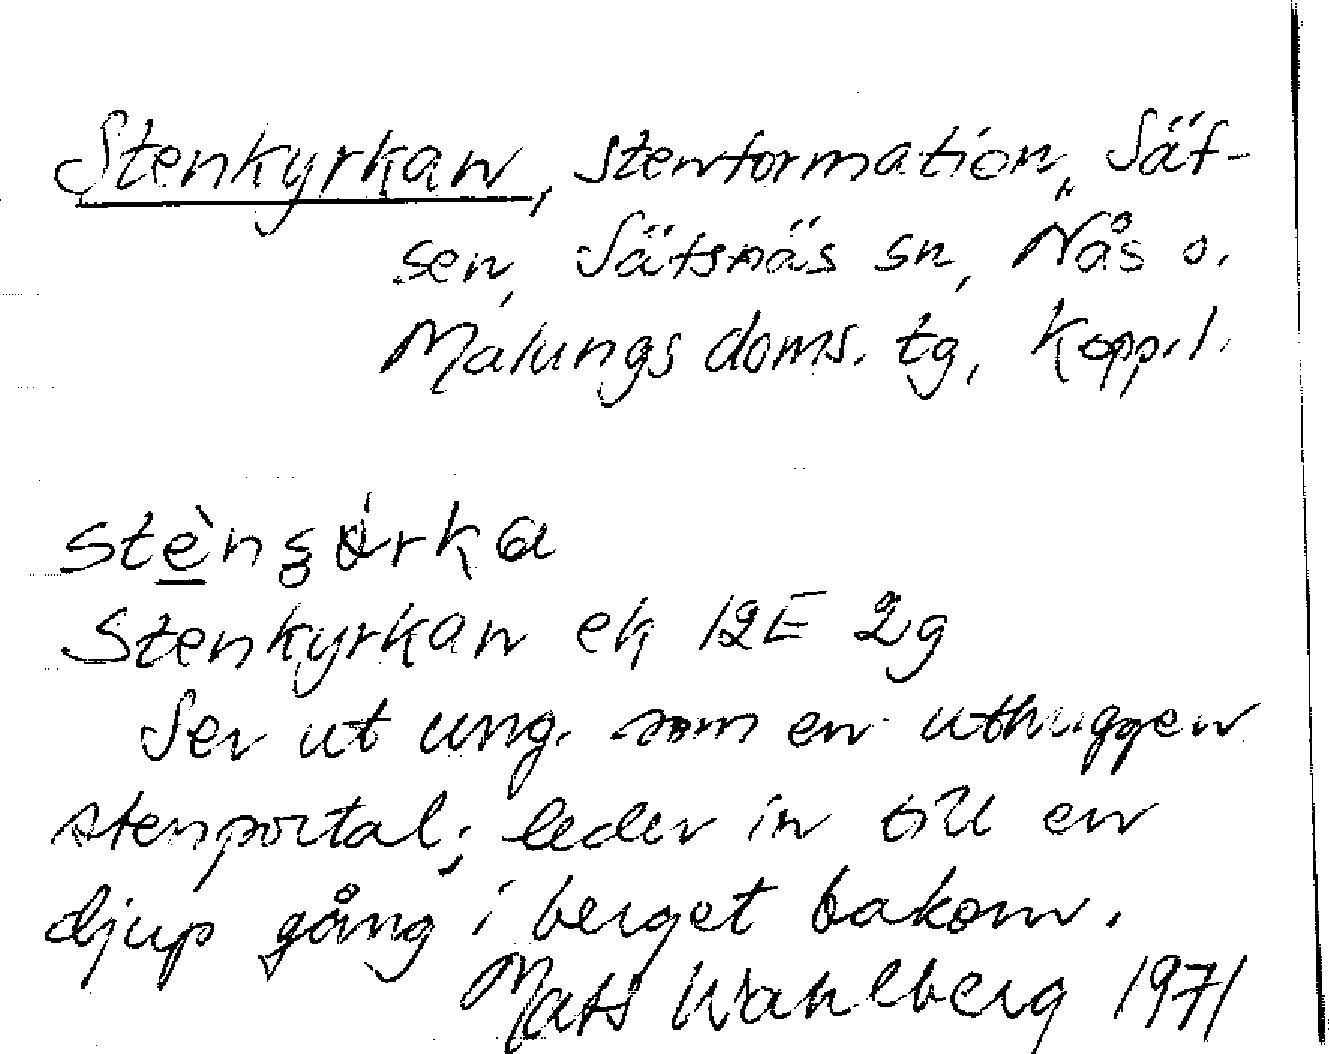 Stenkyrkan, stenformation, Säf-
sen, Säfsnäs sn, Nås o.
Malungs doms. tg, Kopp. l.
Stenkyrkan ek 12E 2g
Ser ut ung. som en uthuggen
stenportal; leder in till en
djup gång i berget bakom.
Mats Wahlberg 1971